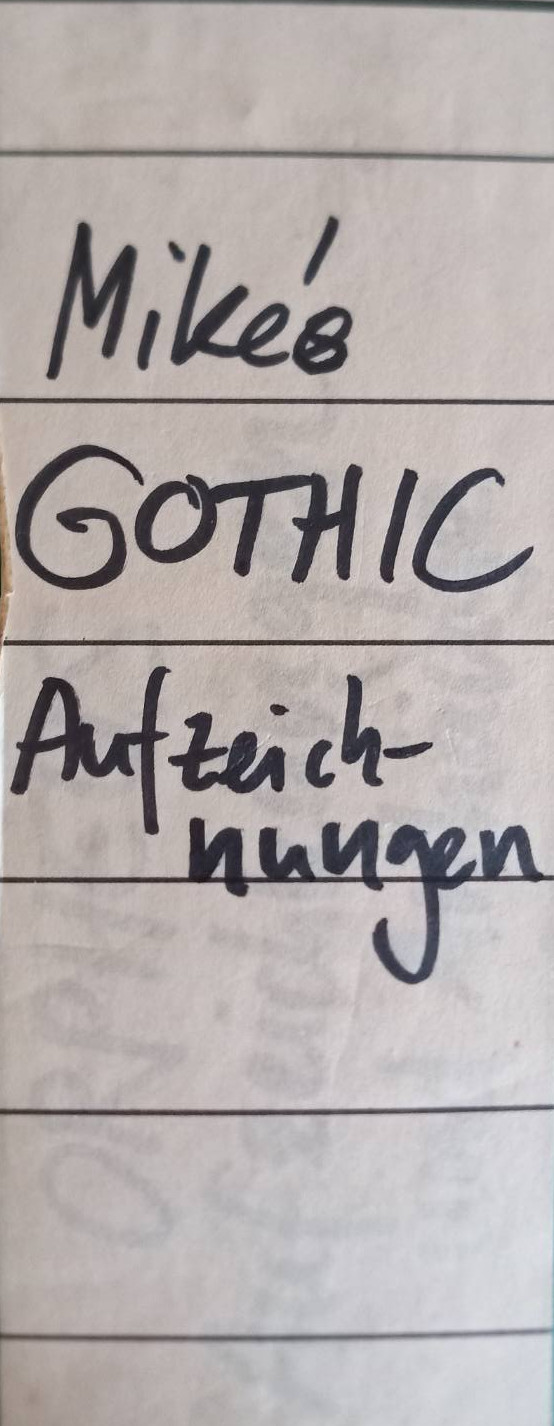 Mike's
GOTHIC
Aufzeich-
nungen